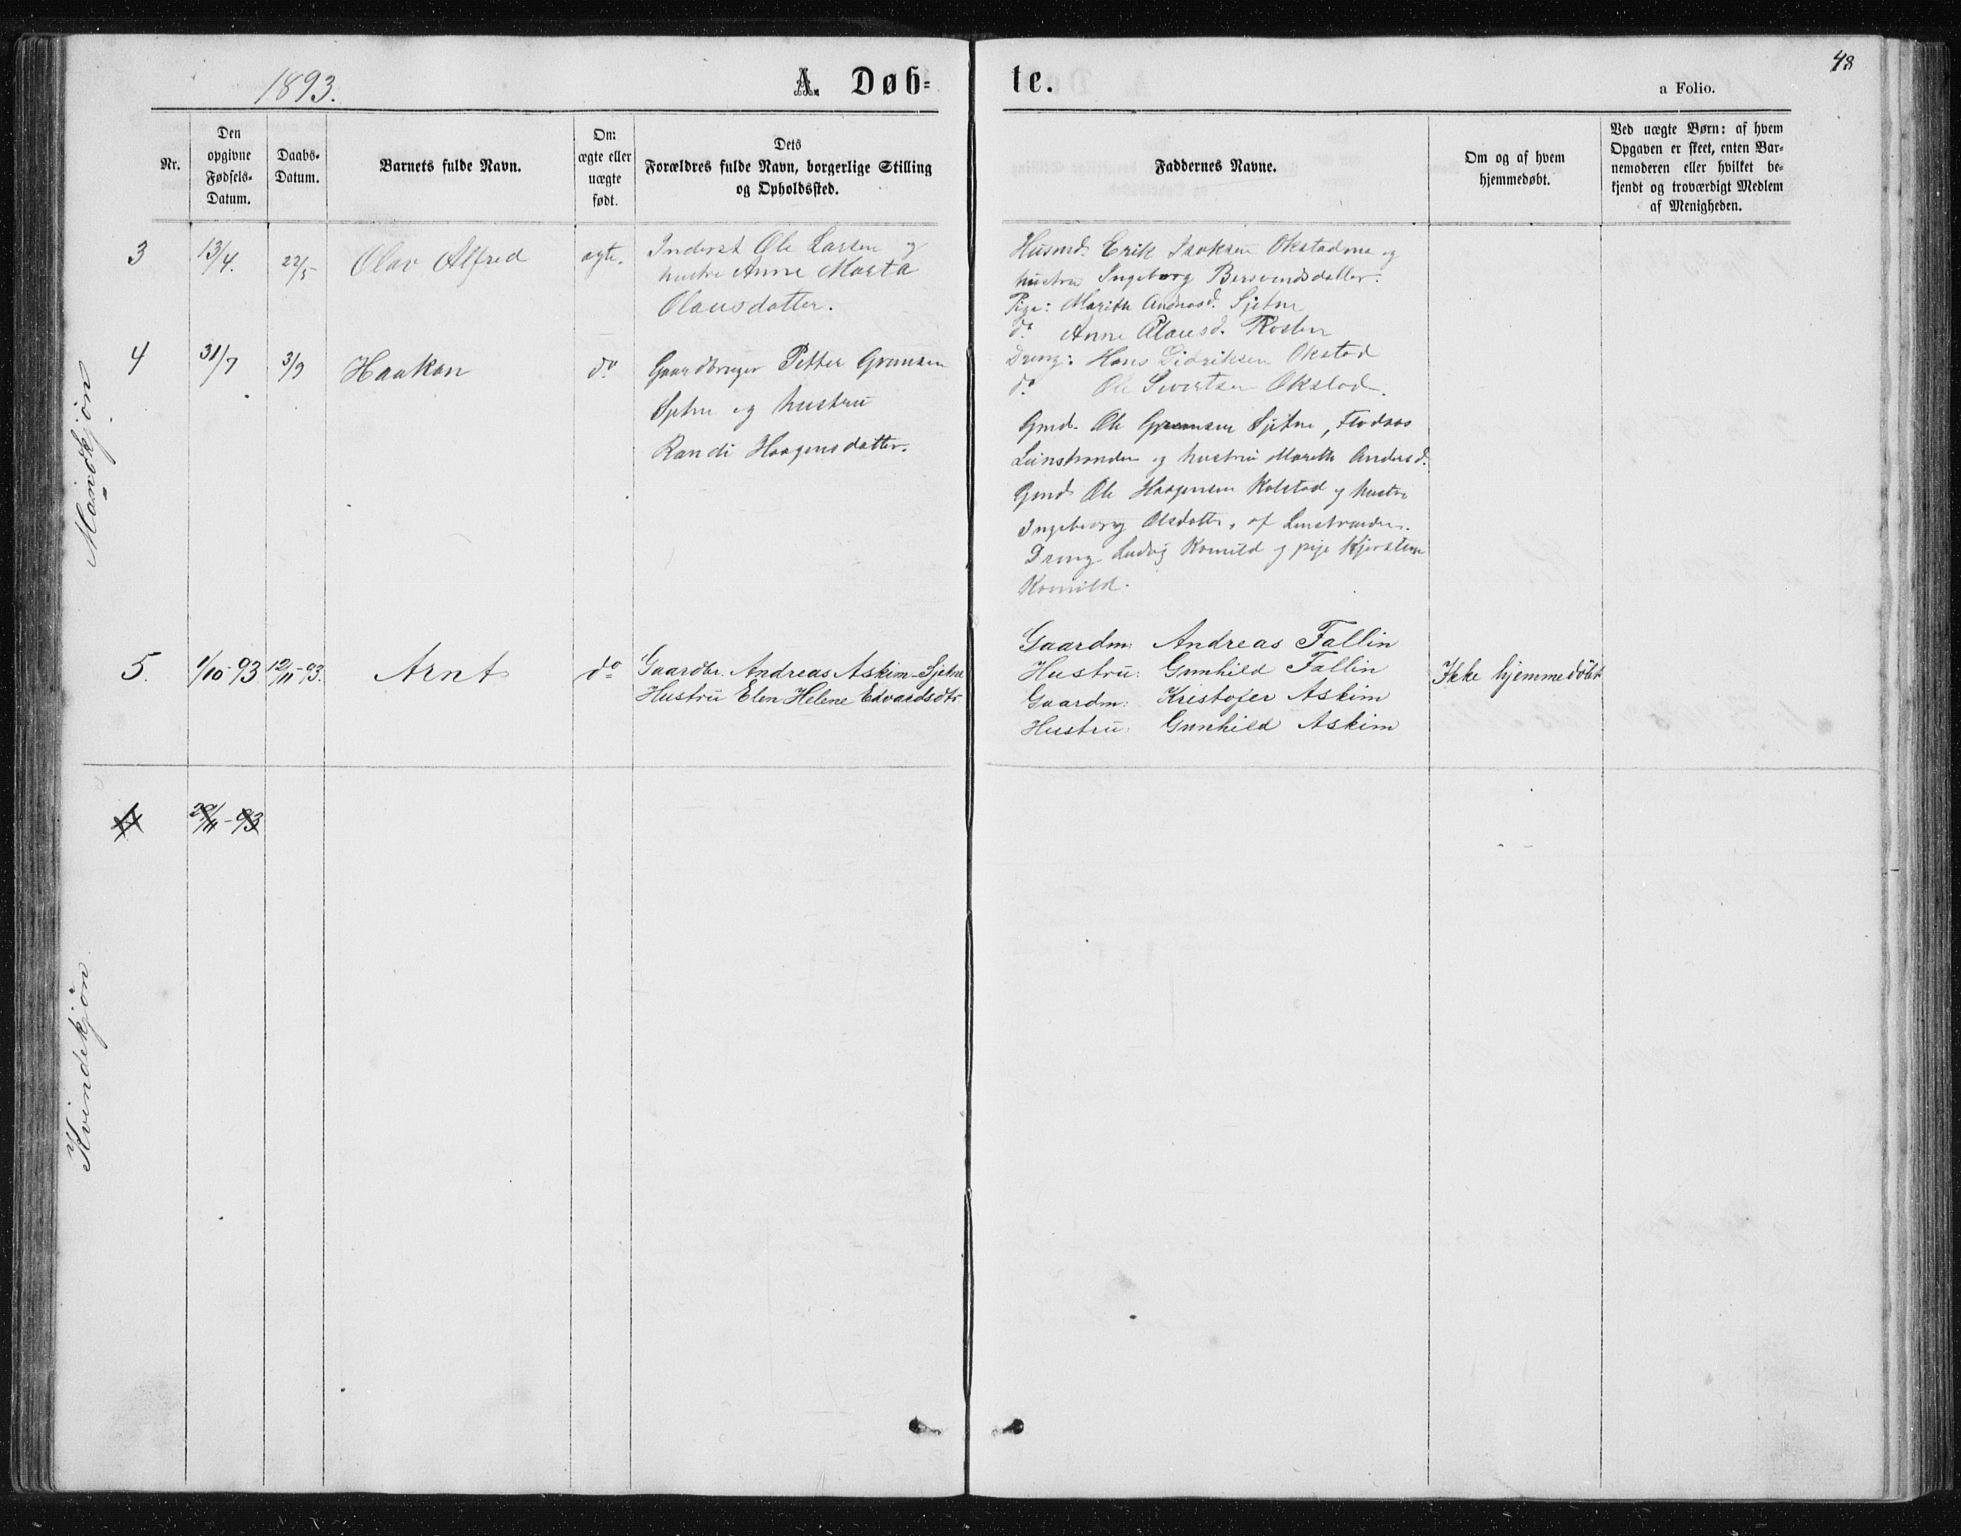 48
1893.
A. Døb=
te.
a Folio.
Nr.
Den
opgivne
Fødsels-
Datum.
Daabs-
Datum.
Barnets fulde Navn.
Om
ægte eller
uægte
født.
Dets
Forældres fulde Navn, borgerlige Stilling
og Opholdssted.
Faddernes Navne.
Om og af hvem
hjemmedøbt.
Ved uægte Børn: af hvem
Opgaven er skeet, enten Bar-
nemoderen eller hvilket be-
kjendt og troværdigt Medlem
af Menigheden.
Mandkjön
3
13/4.
22/5
Olav Alfred
ægte.
Inderst Ole Larsen og
hustru Anne Marta
Olausdatter.
Husmd. Erik Isaksen og
hustru Ingeborg Bersvendsdatter.
Pige: Marith Andersd. Sjetne
do Anne Olausd. Rosten
Dreng: Hans Didriksen Okstad
do Ole Sivertsen Okstad.
4
31/7
3/9
Haakon
do
Gaardbruger Petter Gremsen
Sjetne og hustru
Randi Haagensdatter.
Gmd. Ole Gremsen Sjetne, Flodaas
Leinstranden og hustru Marith Andersd.
Gmd. Ole Haagensen Kolstad og hustru
Ingeborg Olsdatter, af Leinstranden.
Dreng Ludvig Kroneld og pige Kjerstine
5.
1/10-93
12/11-93.
Arnt
do
Gaardbr. Andreas Askim-Sjetne
Hustru Elen Helene Edvardsdtr.
Gaardm: Andreas Fallin
Hustru: Gunhild Fallin
Gaardm: Kristofer Askim
Hustru: Gunhild Askim
Ikke hjemmedöbt
/11-93
Kvindekjön